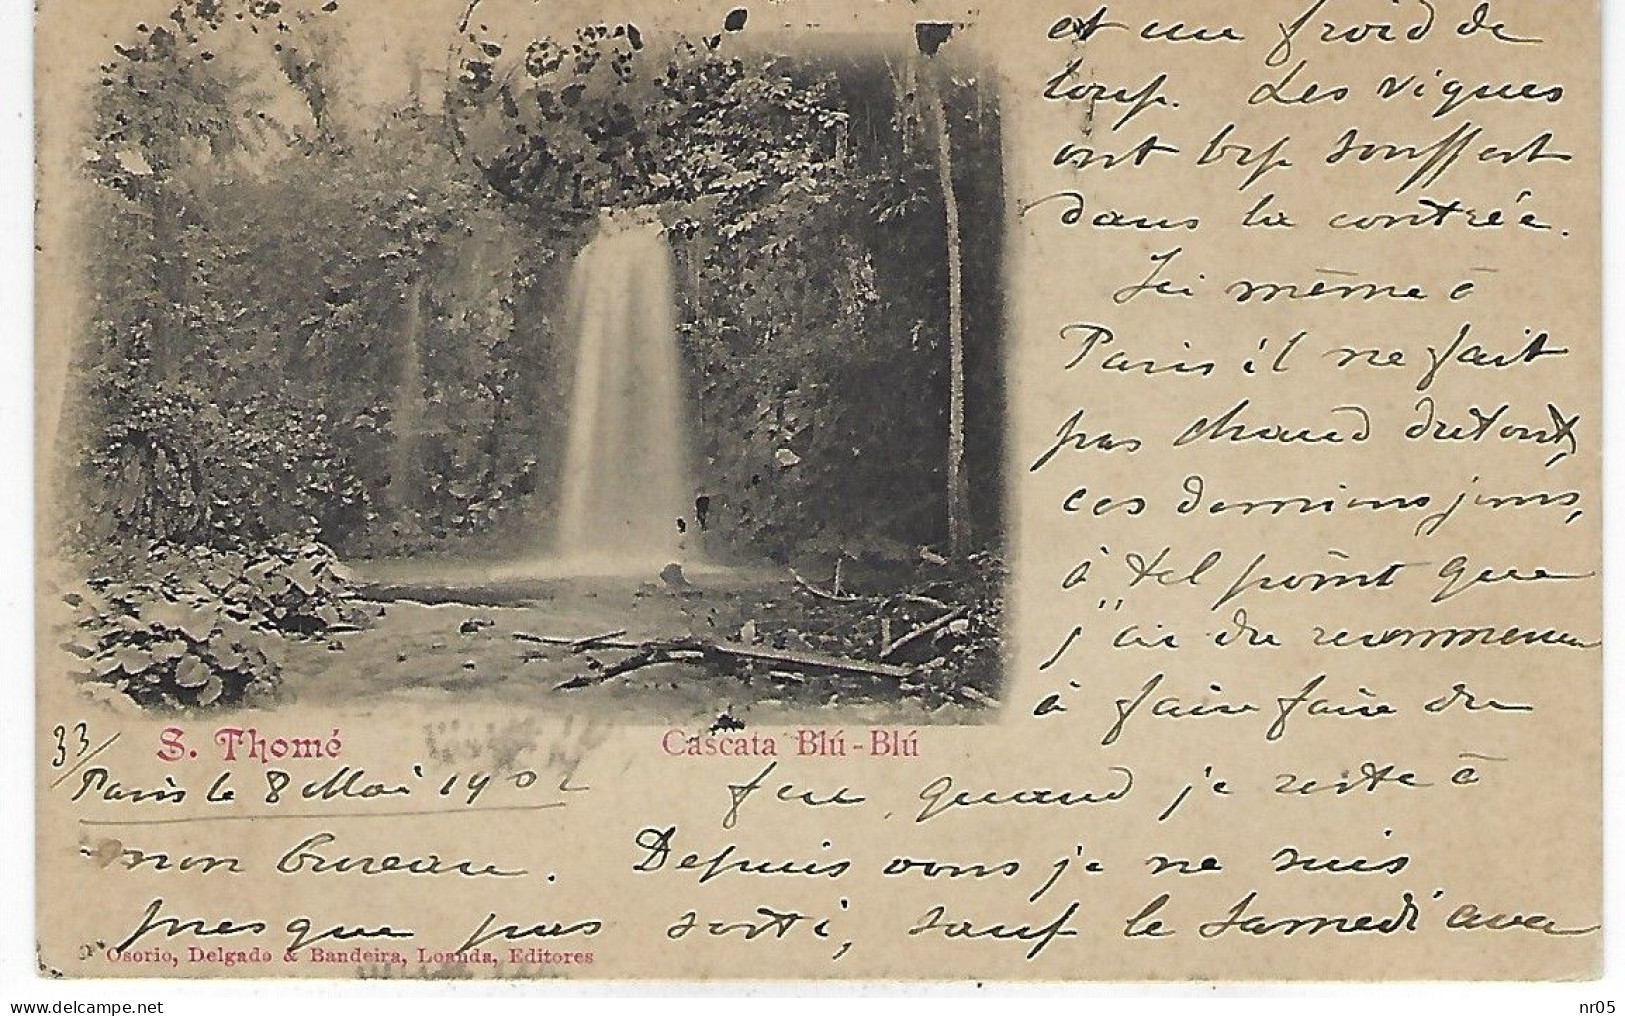 et un froid de
loup. Les vignes
ont bcp souffert
dans la contrée.
Ici même à
Paris il ne fait
pas chaud du tout,
ces derniers jours,
à tel point que
j'ai du recommencer
à faire faire du
33/
S. Thomé
Cascata Blú-Blú
Paris le 8 Mai 1902
feu, quand je reste à
mon bureau. Depuis vous je ne suis
presque pas sorti, sauf le samedi avec
Osorio, Delgado & Bandeira, Loanda, Editores
https://www.delcampe.net
nr05